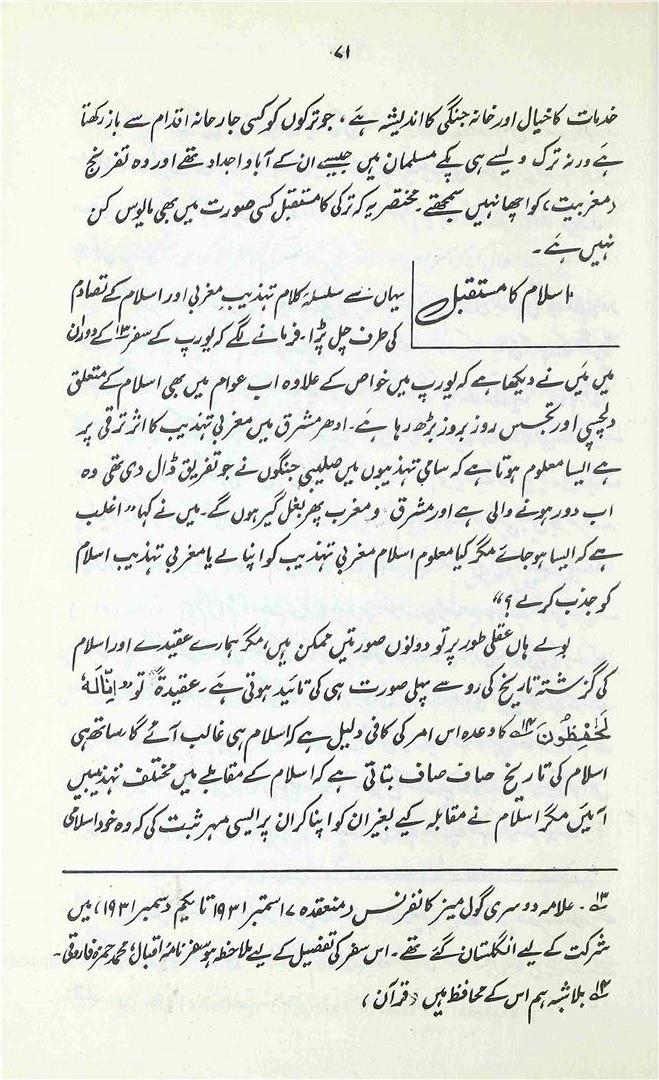 ۷۱
خدمات کا خیال اور خانہ جنگی کا اندیشہ ہے، جو ترکوں کو کسی جارحانہ اقدام سے باز رکھتا
ہے ورنہ ترک ویسے ہی پکے مسلمان ہیں جیسے ان کے آباو اجداد تھے اور وہ تفرنج
(مغربیت) کو اچھا نہیں سمجھتے۔ مختصر یہ کہ ترکی کا مستقبل کسی صورت میں بھی مایوس کن
نہیں ہے۔
اسلام کا مستقبل
یہاں سے سلسلۂ کلام تہذیبِ مغربی اور اسلام کے تصادم
کی طرف چل پڑا۔ فرمانے لگے کہ یورپ کے سفر ۱۳؎ کے دوران
میں مَیں نے دیکھا ہے کہ یورپ میں خواص کے علاوہ اب عوام میں بھی اسلام کے متعلق
دلچسپی اور تجسس روز بروز بڑھ رہا ہے۔ ادھر مشرق میں مغربی تہذیب کا اثر ترقی پر
ہے ایسا معلوم ہوتا ہے کہ سامی تہذیبوں میں صلیبی جنگوں نے جو تفریق ڈال دی تھی وہ
اب دور ہونے والی ہے اور مشرق و مغرب پھر بغل گیر ہوں گے۔ میں نے کہا "اغلب
ہے کہ ایسا ہو جائے مگر کیا معلوم اسلام مغربی تہذیب کو اپنا لے یا مغربی تہذیب اسلام
کو جذب کرلے؟"
بولے ہاں عقلی طور پر تو دونوں صورتیں ممکن ہیں، مگر ہمارے عقیدے اور اسلام
کی گزشتہ تاریخ کی رو سے پہلی صورت ہی کی تائید ہوتی ہے۔ عقیدۃً تو "اِنَّا لَہٗ
لَحٰفِظُوْنَ" ۱۴؎ کا وعدہ اس امر کی کافی دلیل ہے کہ اسلام ہی غالب آئے گا، ساتھ ہی
اسلام کی تاریخ صاف صاف بتاتی ہے کہ اسلام کے مقابلے میں مختلف تہذیبیں
آئیں مگر اسلام نے مقابلہ کیے بغیر ان کو اپنا کر ان پر ایسی مہر ثبت کی کہ وہ خود اسلامی
۱۳؎ ۔ علامہ دوسری گول میز کانفرنس (منعقدہ ۷ ستمبر ۱۹۳۱ تا یکم دسمبر ۱۹۳۱) میں
شرکت کے لیے انگلستان گئے تھے۔ اس سفر کی تفصیل کے لیے ملاحظہ ہو سفر نامہ اقبال، محمد حمزہ فاروقی۔
۱۴؎ بلاشبہ ہم اس کے محافظ ہیں (قرآن)